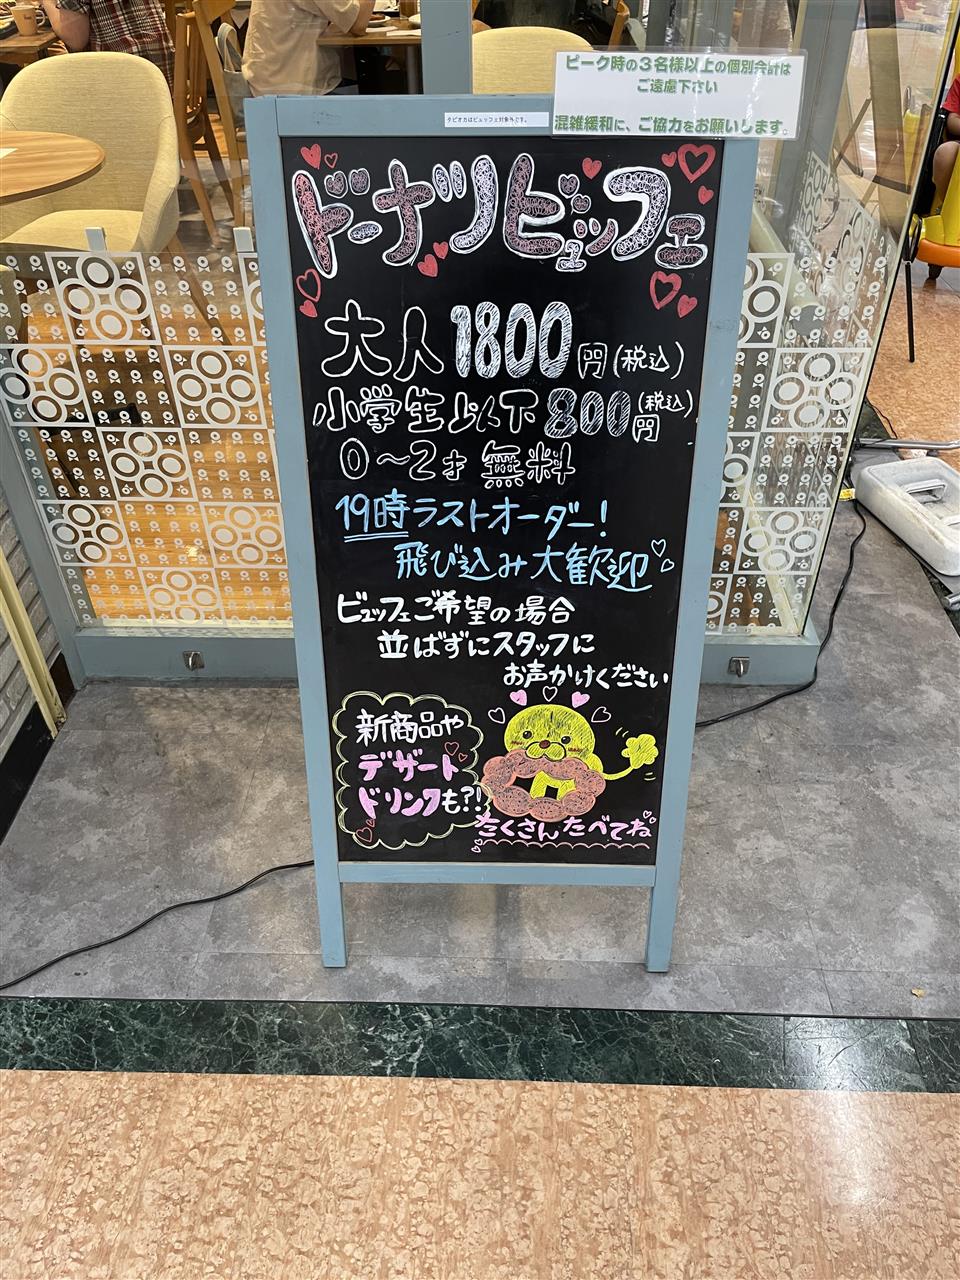 ピーク時の3名様以上の個別会計は
ご遠慮下さい
混雑緩和に、ご協力をお願いします。
タピオカはビュッフェ対象外です。
ドーナツビュッフェ
大人1800円(税込)
小学生以下800円(税込)
0～2才 無料
19時ラストオーダー!
飛び込み大歓迎
ビュッフェご希望の場合
並ばずにスタッフに
お声かけください
新商品や
デザート
ドリンクも?!
たくさんたべてね